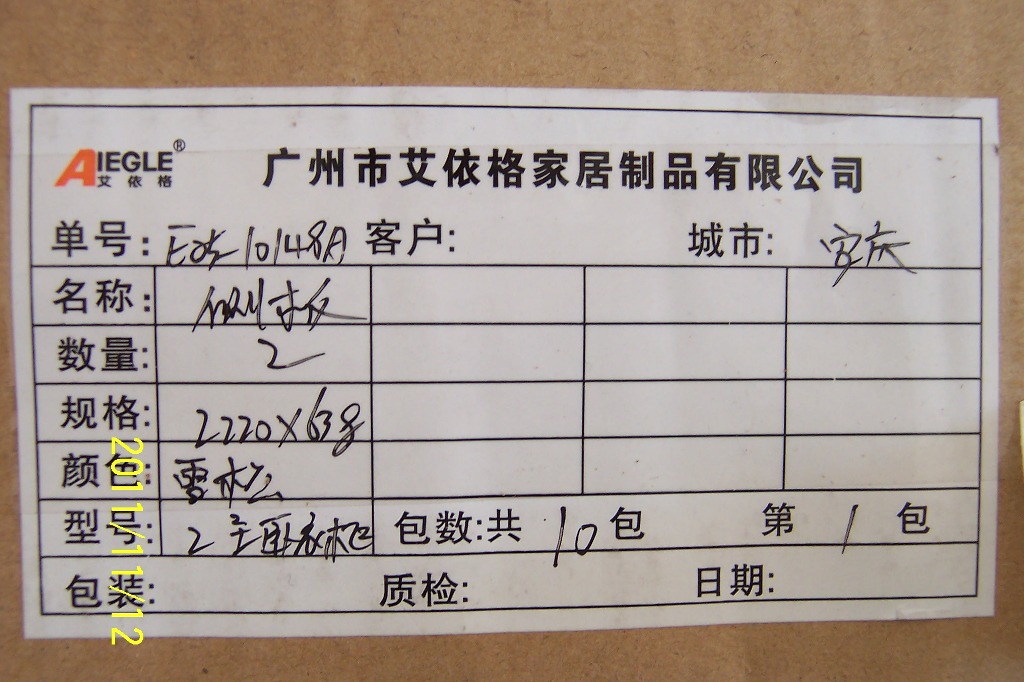 AIEGLE®
艾依格
广州市艾依格家居制品有限公司
单号: 10148A 客户: 城市: 安庆
名称: 侧板
数量: 2
规格: 2220×638
颜色: 雪松
型号: 2 主卧衣柜 包数:共 10 包 第 1 包
包装: 质检: 日期:
2011/11/12